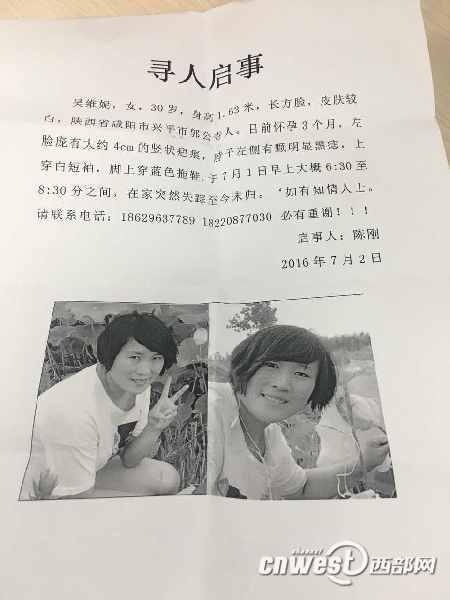 寻人启事
吴维妮，女，30岁，身高1.63米，长方脸，皮肤较
白，陕西省咸阳市兴平市 人。目前怀孕3个月，左
脸庞有大约4cm的竖状疤痕， 子左侧有颗明显黑痣，上
穿白短袖，脚上穿蓝色拖鞋， 于7月1日早上大概6:30至
8:30分之间，在家突然失踪至今未归。 如有知情人士。
请联系电话：18629637789 18220877030 必有重谢！！！
启事人：陈刚
2016年7月2日
cnwest西部网